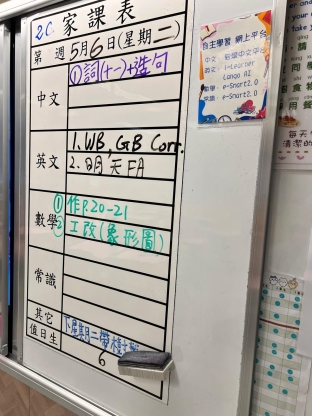 2C 家課表
第 週 5月6日(星期二)
中文 ①詞(十一)+造句
英文 1. WB, GB Corr.
2. 明天FA
數學 ①作P.20-21
②工改(象形圖)
常識
其它 下星期二帶
值日生 6
自主學習 網上平台
中文
英文 : i-Learner
Lango AI
數學 : e-Smart2.0
常識 : e-Smart2.0